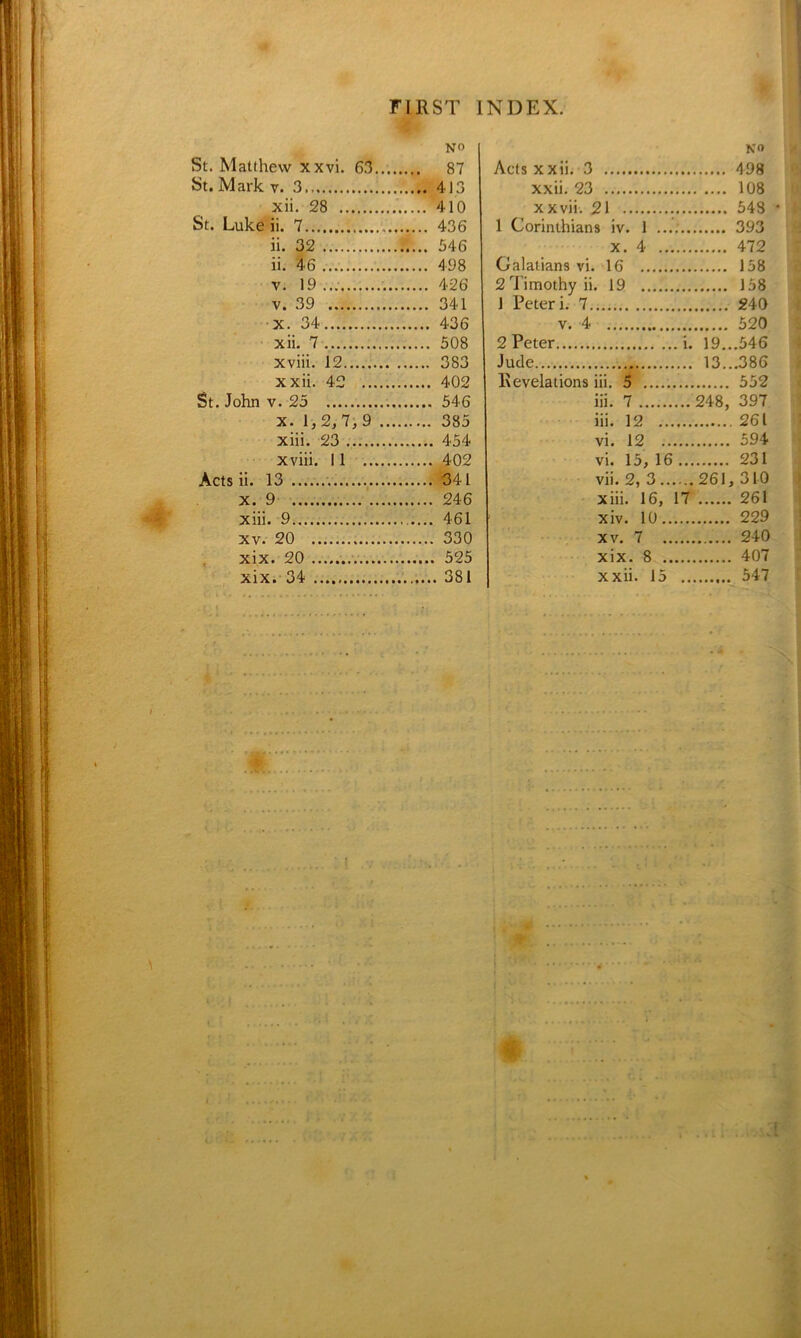 FIRST INDEX.
No
St. Matthew xxvi. 63........ 87
St. Mark v. 3................ 413
xii. 28 ............... 410
St. Luke ii. 7................ 436
ii. 32 ................ 546
ii. 46 ................ 498
v. 19 ................ 426
v. 39 ................ 341
x. 34................ 436
xii. 7 ................ 508
xviii. 12............... 383
xxii. 42 ............ 402
St. John v. 25 ................ 546
x. 1, 2, 7, 9 ......... 385
xiii. 23 ............... 454
xviii. 11 ............ 402
Acts ii. 13 .................... 341
x. 9 .................... 246
xiii. 9.................... 461
xv. 20 .................... 330
xix. 20 .................... 525
xix. 34 .................... 381
No
Acts xxii. 3 .................... 498
xxii. 23 .................... 108
xxvii. 21 ................ 548
1 Corinthians iv. 1 ............ 393
x. 4 ............ 472
Galatians vi. 16 ................ 158
2 Timothy ii. 19 ............... 158
1 Peter i. 7.................... 240
v. 4 .................... 520
2 Peter.................... i. 19...546
Jude........................ 13...386
Revelations iii. 5 ............... 552
iii. 7 .........248, 397
iii. 12 ............... 261
vi. 12 ............... 594
vi. 15, 16 ......... 231
vii. 2, 3......261, 310
xiii. 16, 17 ...... 261
xiv. 10............ 229
xv. 7 ............... 240
xix. 8 ............ 407
xxii. 15 ......... 547